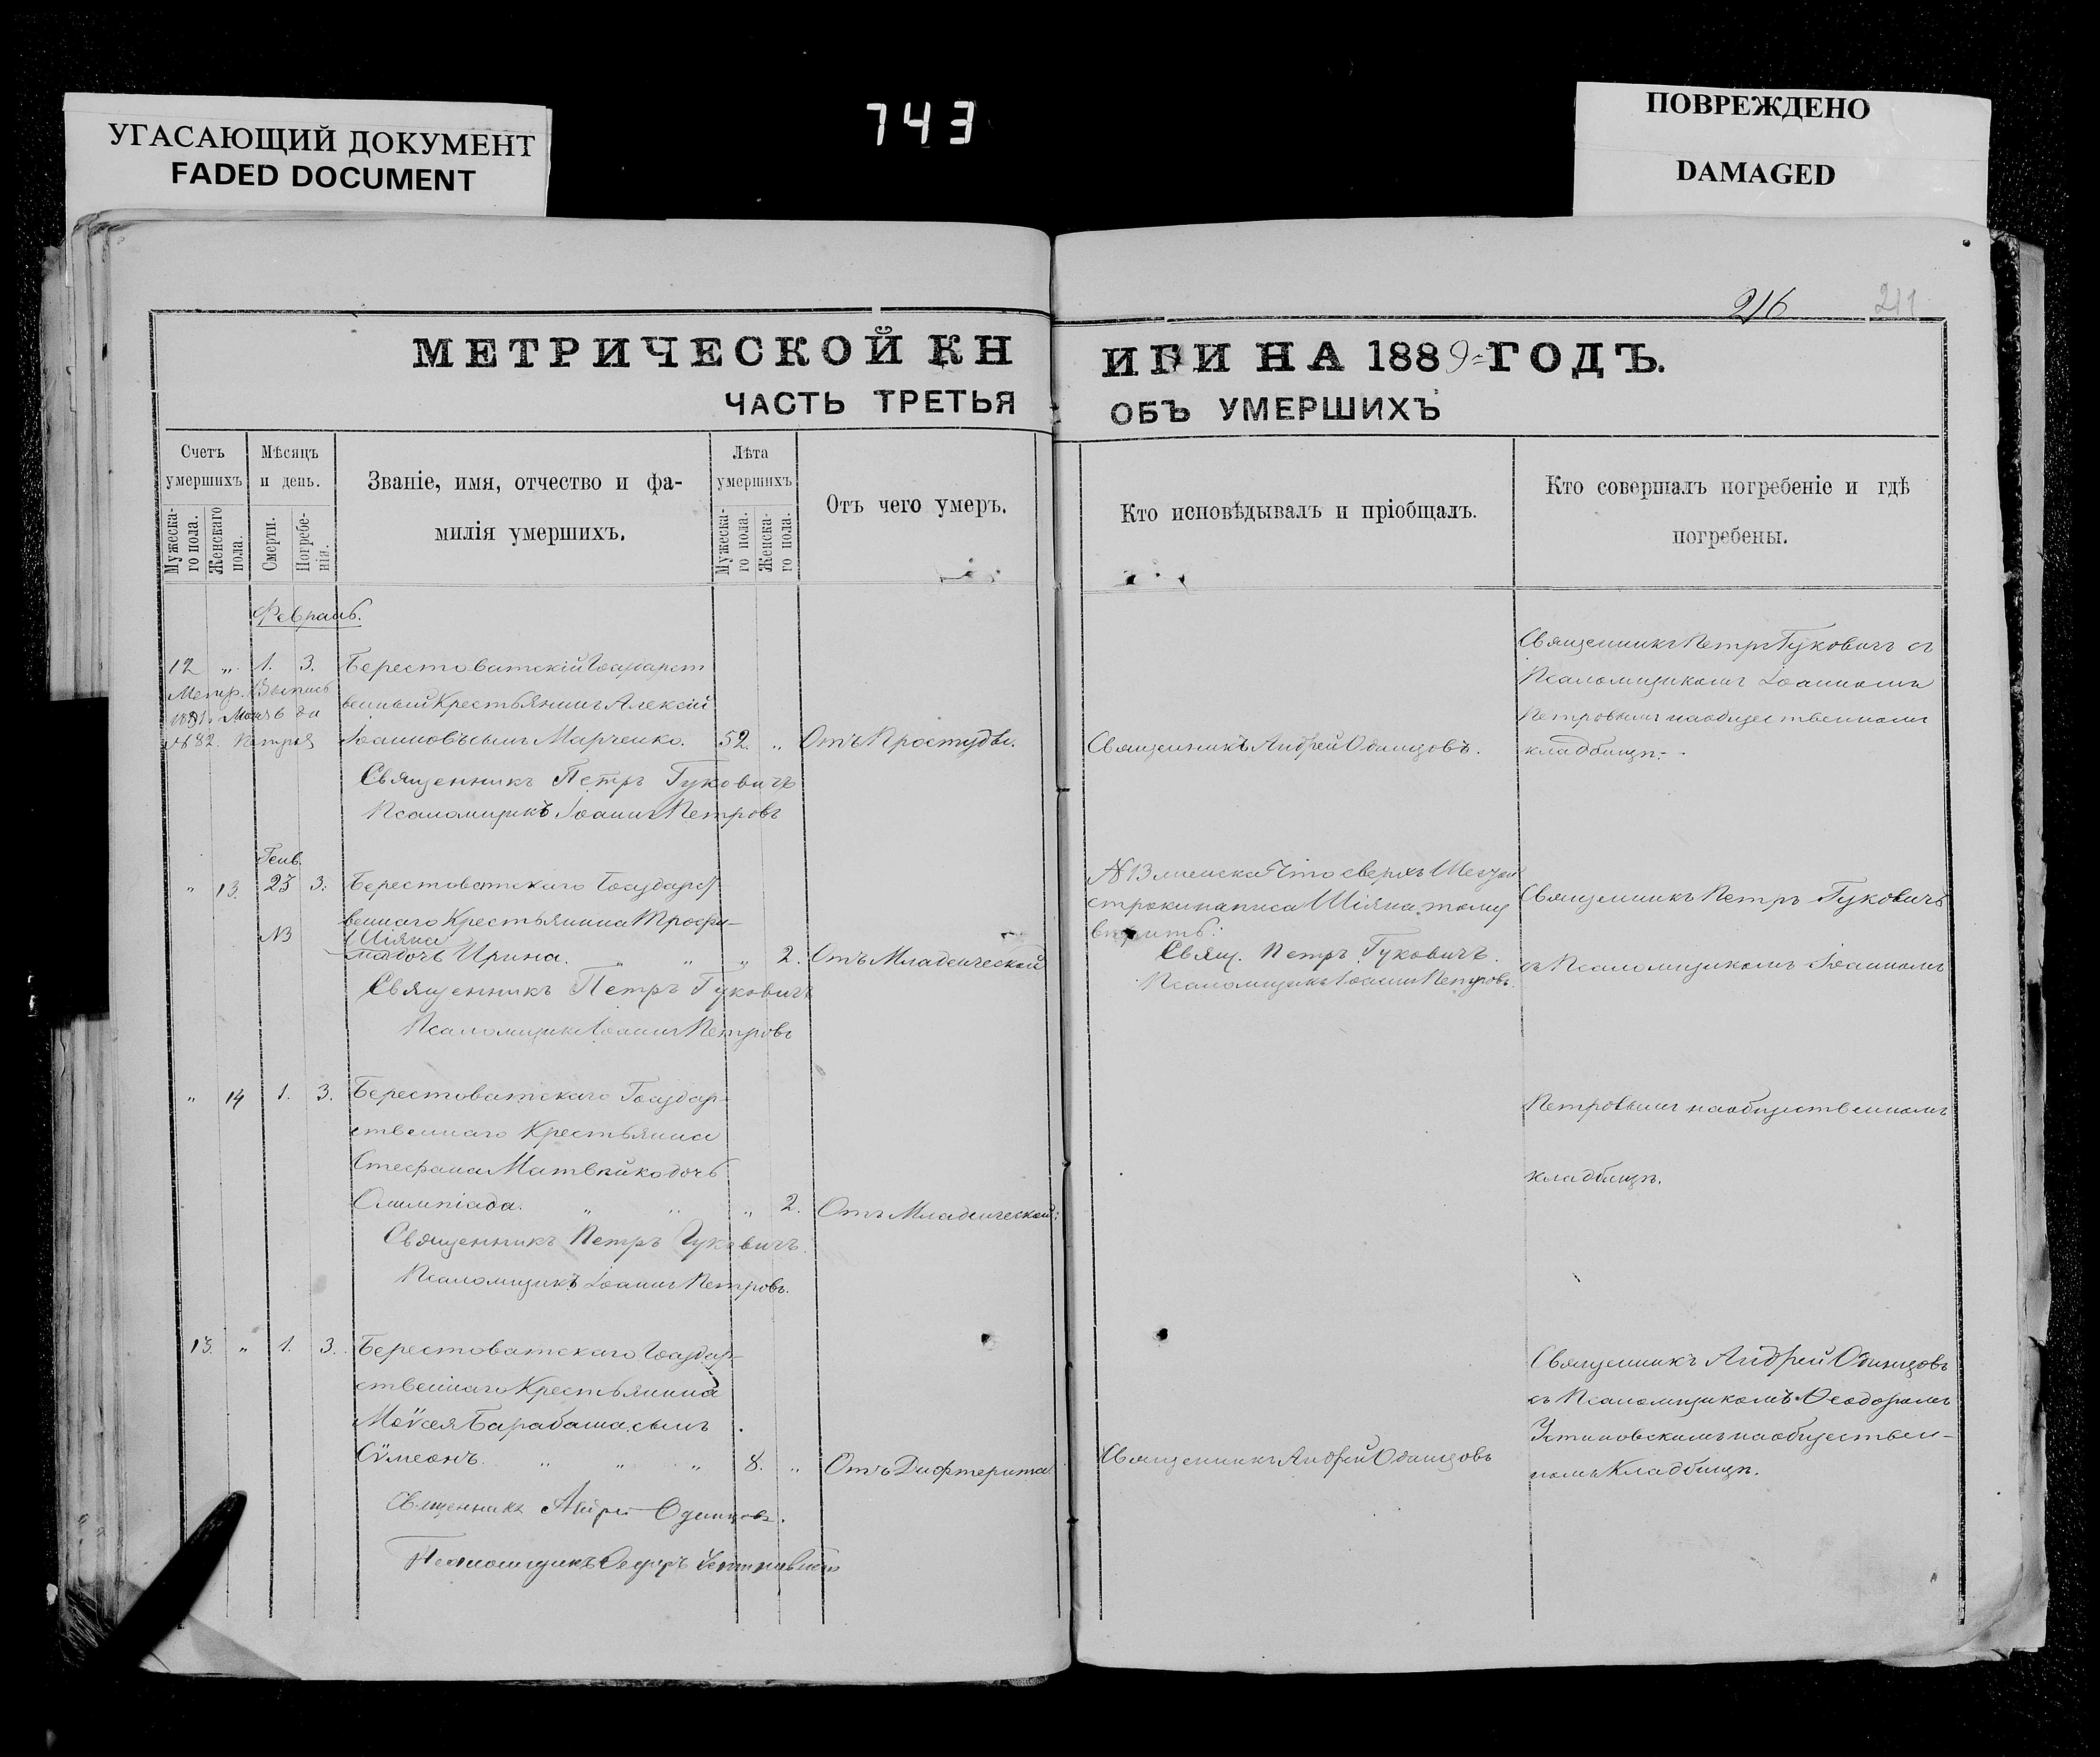 743
УГАСАЮЩИЙ ДОКУМЕНТ
FADED DOCUMENT
ПОВРЕЖДЕНО
DAMAGED
216
211
МЕТРИЧЕСКОЙ КН
ИГИ НА 1889 ГОДЪ.
ЧАСТЬ ТРЕТЬЯ
ОБЪ УМЕРШИХЪ
Счетъ умершихъ
Мѣсяцъ и день.
Званіе, имя, отчество и фа-
милія умершихъ.
Лѣта умершихъ
Отъ чего умеръ.
Кто исповѣдывалъ и пріобщалъ.
Кто совершалъ погребеніе и гдѣ
погребены.
Мужеска-
го пола.
Женскаго
пола.
Смерти.
Погребе-
нія.
Мужеска-
го пола.
Женска-
го пола.
Февраль.
12 " 1. 3. Берестоватскій Государст
венный Крестьянинъ Алексій
Іоанновъ сынъ Марченко. 52. " Отъ Простуды.
Метр. Выпись
№82.
Священникъ Андрей Одинцовъ.
Священникъ Петръ Гуковичъ съ
Псаломщикомъ Іоанномъ
Петровымъ на общественномъ
кладбищѣ.
Священникъ Петръ Гуковичъ
Псаломщикъ Іоаннъ Петровъ
Генв.
" 13. 23 3. Берестоватскаго Государст
веннаго Крестьянина Трофи-
Шіяна
ма дочь Ирина. " " " 2. Отъ Младенческой
№13 сверхъ
строки написа Шіяна тому
вѣрить:
Свящ. Петръ Гуковичъ.
Псаломщикъ Іоаннъ Петровъ.
Священникъ Петръ Гуковичъ
съ Псаломщикомъ Іоанномъ
Священникъ Петръ Гуковичъ
Псаломщикъ Іоаннъ Петровъ
" 14 1. 3. Берестоватскаго Государ-
ственнаго Крестьянина
Стефана Матвѣйко дочь
Олимпіада. " " " 2. Отъ Младенческой:
Петровымъ на общественномъ
кладбищѣ.
Священникъ Петръ Гуковичъ.
Псаломщикъ Іоаннъ Петровъ.
13. " 1. 3. Берестоватскаго Государ-
ственнаго Крестьянина
Моѵсея Барабаша сынъ
Сѵмеонъ. " " " 8. " Отъ Дифтерита.
Священникъ Андрей Одинцовъ
Священникъ Андрей Одинцовъ
съ Псаломщикомъ Ѳеодоромъ
Устиновскимъ на обществен-
номъ Кладбищѣ.
Священникъ Андрей Одинцовъ.
Псаломщикъ